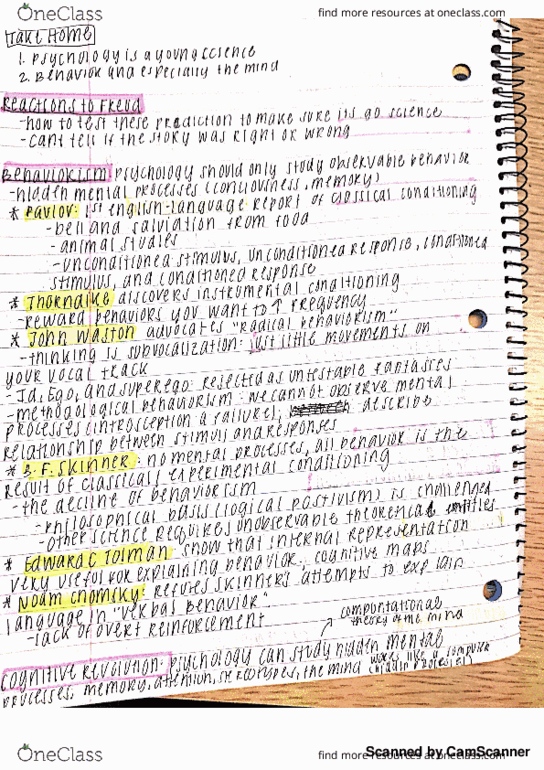 OneClass
find more resources at oneclass.com
Take Home
1. Psychology is a young science
2. Behavior and especially the mind
Reactions to Freud
-how to test these prediction to make sure its go science
-cant tell if the story was right or wrong
Behaviorism psychology should only study observable behavior
-hidden mental processes (conciousness, memory)
* Pavlov: 1st english-language report of classical conditioning
-bell and salviation from food
-animal studies
-unconditioned stimulus, unconditioned response, conditioned
stimulus, and conditioned response
* Thorndike discovers instrumental conditioning
-reward behaviors you want to ↑ frequency
* John Waston advocates "radical behaviorism"
-thinking is subvocalization: just little movements on
your vocal track
-Id, Ego, and superego: rejected as untestable fantasies
-methodological behaviorism: we cannot observe mental
processes (introsception a failure); describe
relationship between stimuls and responses
* B.F. Skinner: no mental processes, all behavior is the
result of classical/experimental conditioning
-the decline of behaviorism
-philosophical basis (logical postivism) is challenged
-other science requires unobservable theoretical entities
* Edward C Tolman: show that internal representation
very useful for explaining behavior, cognitive maps
* Noam Chomsky: refutes skinner's attempts to explain
language in "verbal behavior".
-lack of overt reinforcement
computational
theory of the mind
Cognitive Revolution: psychology can study hidden mental
processes, memory, attention, stereotypes, the mind works like a computer
OneClass
find more resources at oneclass.com
Scanned by CamScanner